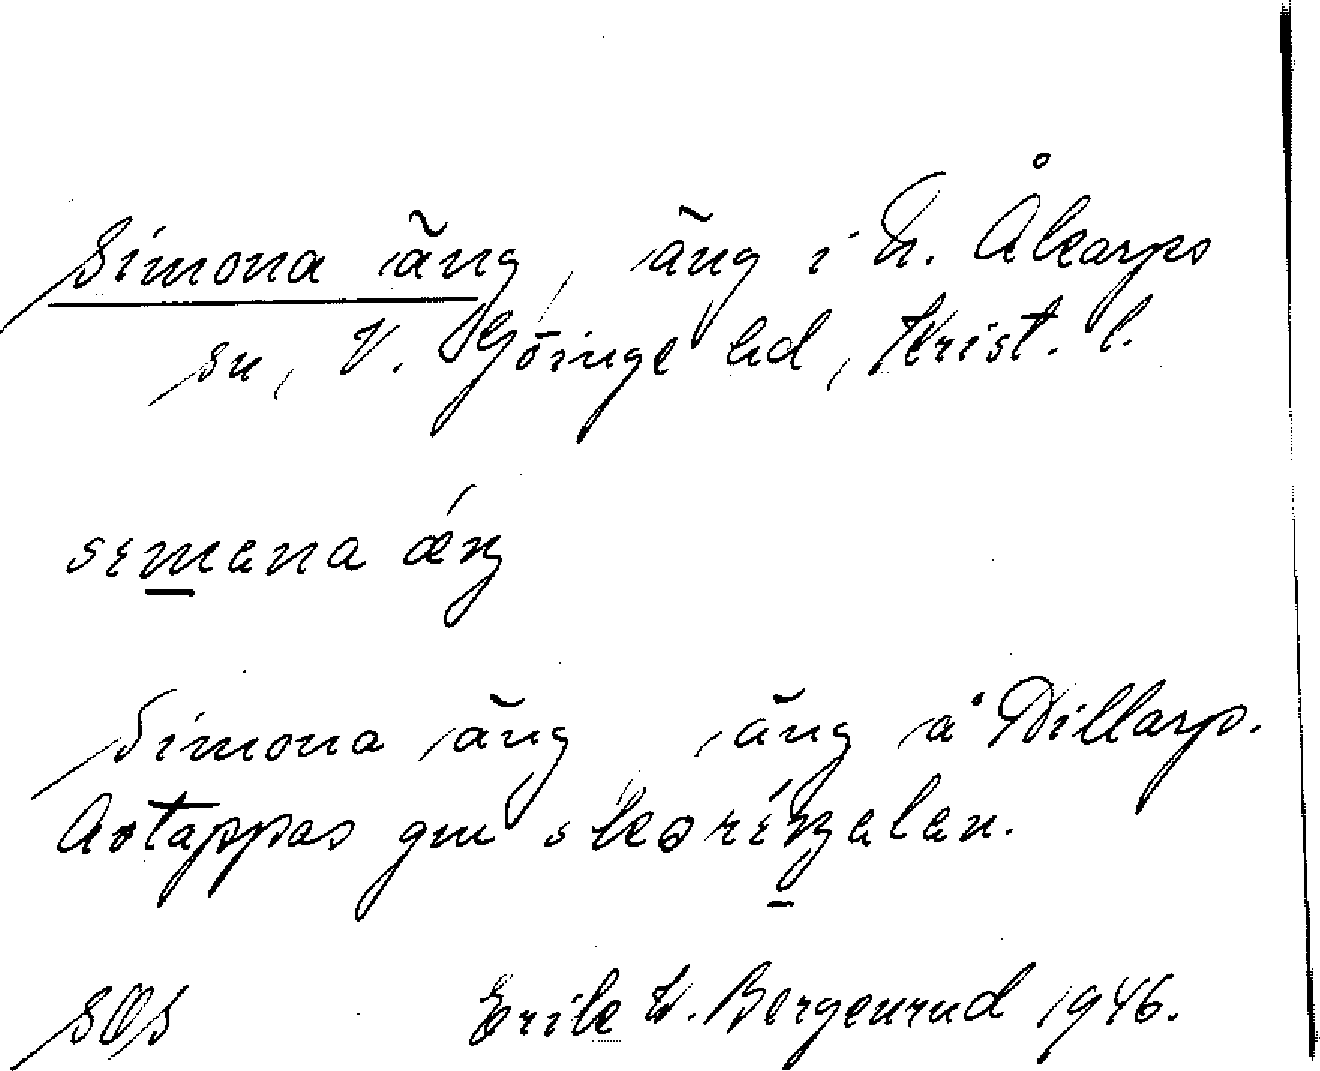 Simona äng, äng i N. Åkarps
sn, V. Göinge hd, Krist. l.
semana äŋ
Simona äng, äng å Dillarp.
Avtappas gm
SOS Erik W. Bergenrud 1946.